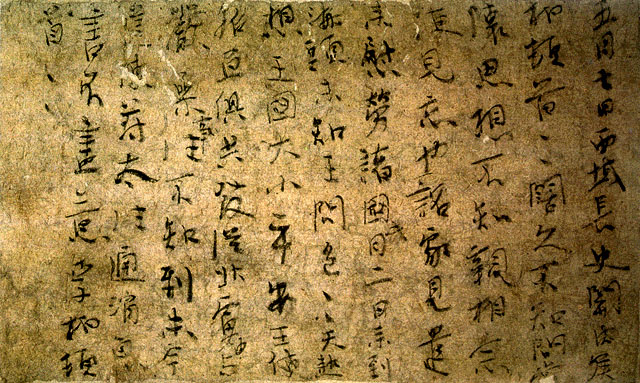 五月七日西域長史關內侯
柏頓首〻闊久不知問常
懷思想不知親相念
便見忘也詔家見遣
來慰勞諸國月二日來到
海頭未知王問邑〻天熱
想王國大小平安王使
招亘俱共發從北虜中與
嚴參事往不知到未今
遣使苻太往通消息
書不盡意李柏頓
首〻